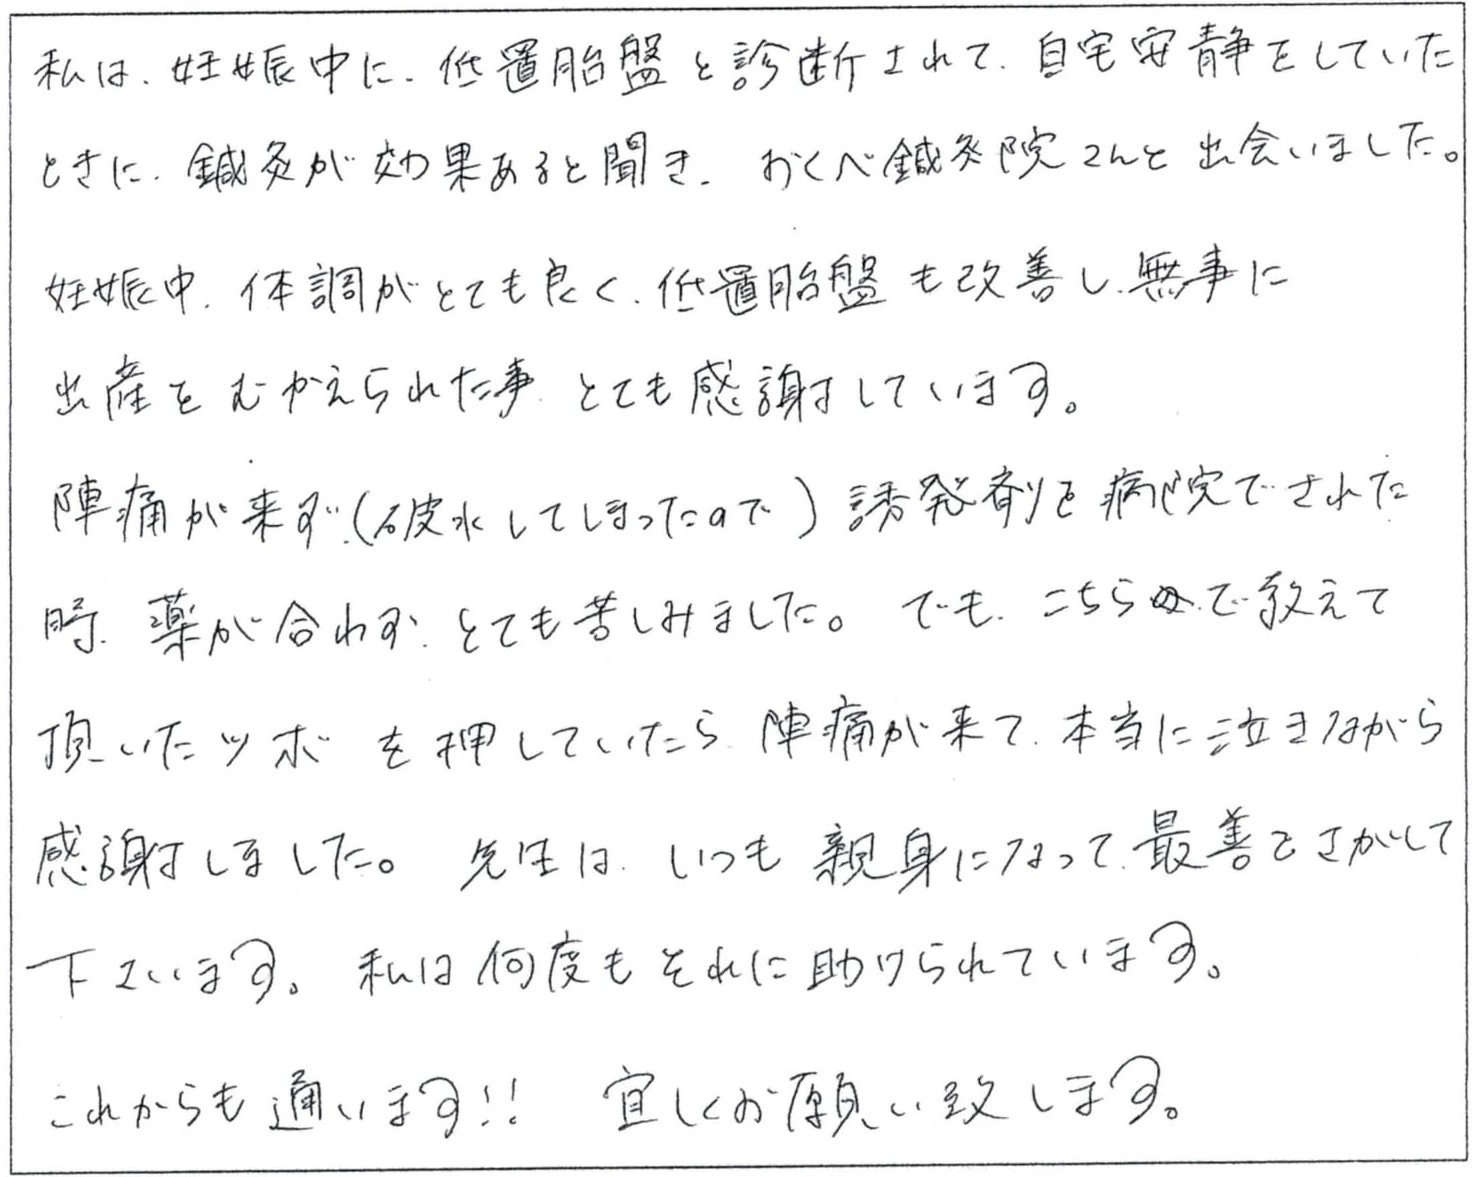 私は、妊娠中に、低置胎盤と診断されて、自宅安静をしていた
ときに、鍼灸が効果あると聞き、おくべ鍼灸院さんと出会いました。
妊娠中、体調がとても良く、低置胎盤も改善し、無事に
出産をむかえられた事、とても感謝しています。
陣痛が来ず、(破水してしまったので)誘発剤を病院でされた
時、薬が合わず、とても苦しみました。でも、こちらで教えて
頂いたツボを押していたら、陣痛が来て、本当に泣きながら
感謝しました。先生は、いつも親身になって、最善をさがして
下さいます。私は何度もそれに助けられています。
これからも通います!!宜しくお願い致します。